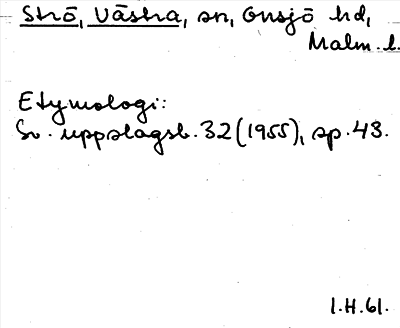 Strö, Västra, sn, Onsjö hd,
Malm. l.
Etymologi:
Sv. uppslagsb. 32 (1955), sp. 43.
I.H. 61.